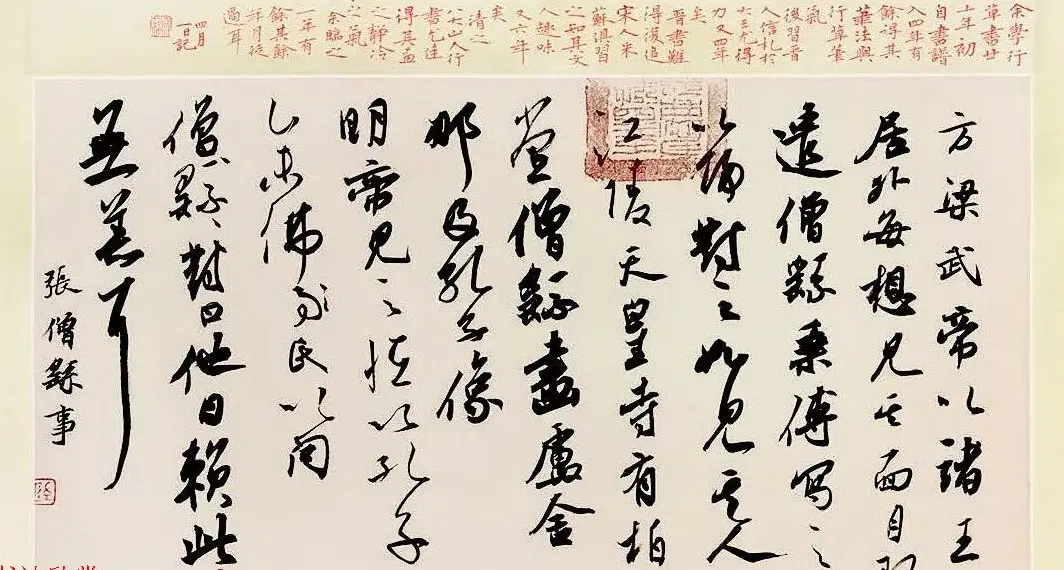 余學行
草書廿
十年初
自書譜
入四年有
餘得其
筆法與
行草筆
氣
後習晉
人信札於
大王尤得
力又四年
矣
晉書難
得復追
宋人米
蘇俱習
之知其文
人趣味
又六年
矣
清之
八大山人行
得其
之靜冷
之氣
余臨之
一年有
餘其餘
年月
過耳
四月
一日記
方梁武帝以諸王
居外每想見其面目
遣僧繇乘傳寫之
以歸對之如見其人
江陵天皇寺有柏
堂僧繇畫盧舍
那及孔子像
明帝見之怪以孔子
佛氏以問
僧繇對曰他日賴此
無恙耳
張僧繇事